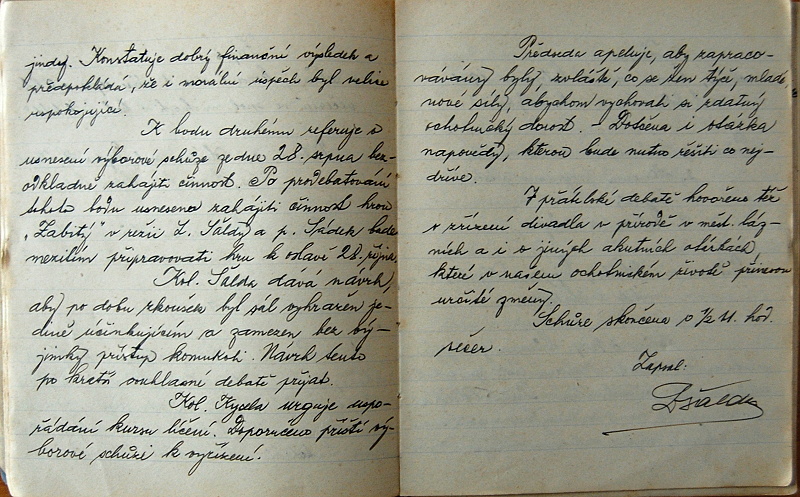 jindy. Konstatuje dobrý finanční výsledek a
předpokládá, že i morální úspěch byl velice
uspokojující.
K bodu druhému referuje o
usnesení výborové schůze ze dne 28. srpna bez-
odkladně zahájiti činnost. Po prodebatování
tohoto bodu usneseno zahájiti činnost hrou
„Zabitý" v režii Z. Šaldy a p. Sádek bude
mezitím připravovati hru k oslavě 28. října.
Kol. Šalda dává návrh,
aby po dobu zkoušek byl sál vyhražen je-
dině účinkujícím a zamezen bez vý-
jimky přístup komukoli. Návrh tento
po kratší souhlasné debatě přijat.
Kol. Kycela urguje uspo-
řádání kursu líčení. Doporučeno příští vý-
borové schůzi k vyřízení.
Předseda apeluje, aby zapraco-
vávány byly zvláště, co se žen týče, mladé
nové síly, abychom vychovali si zdatný
ochotnický dorost. – Dotčena i otázka
nápovědy, kterou bude nutno řešiti co nej-
dříve.
V přátelské debatě hovořeno též
o zřízení divadla v přírodě v měst. láz-
ních a i o jiných akutních otázkách,
které v našem ochotnickém životě přinesou
určité změny.
Schůze skončena o 1/2 11. hod.
večer.
Zapsal:
DŠalda